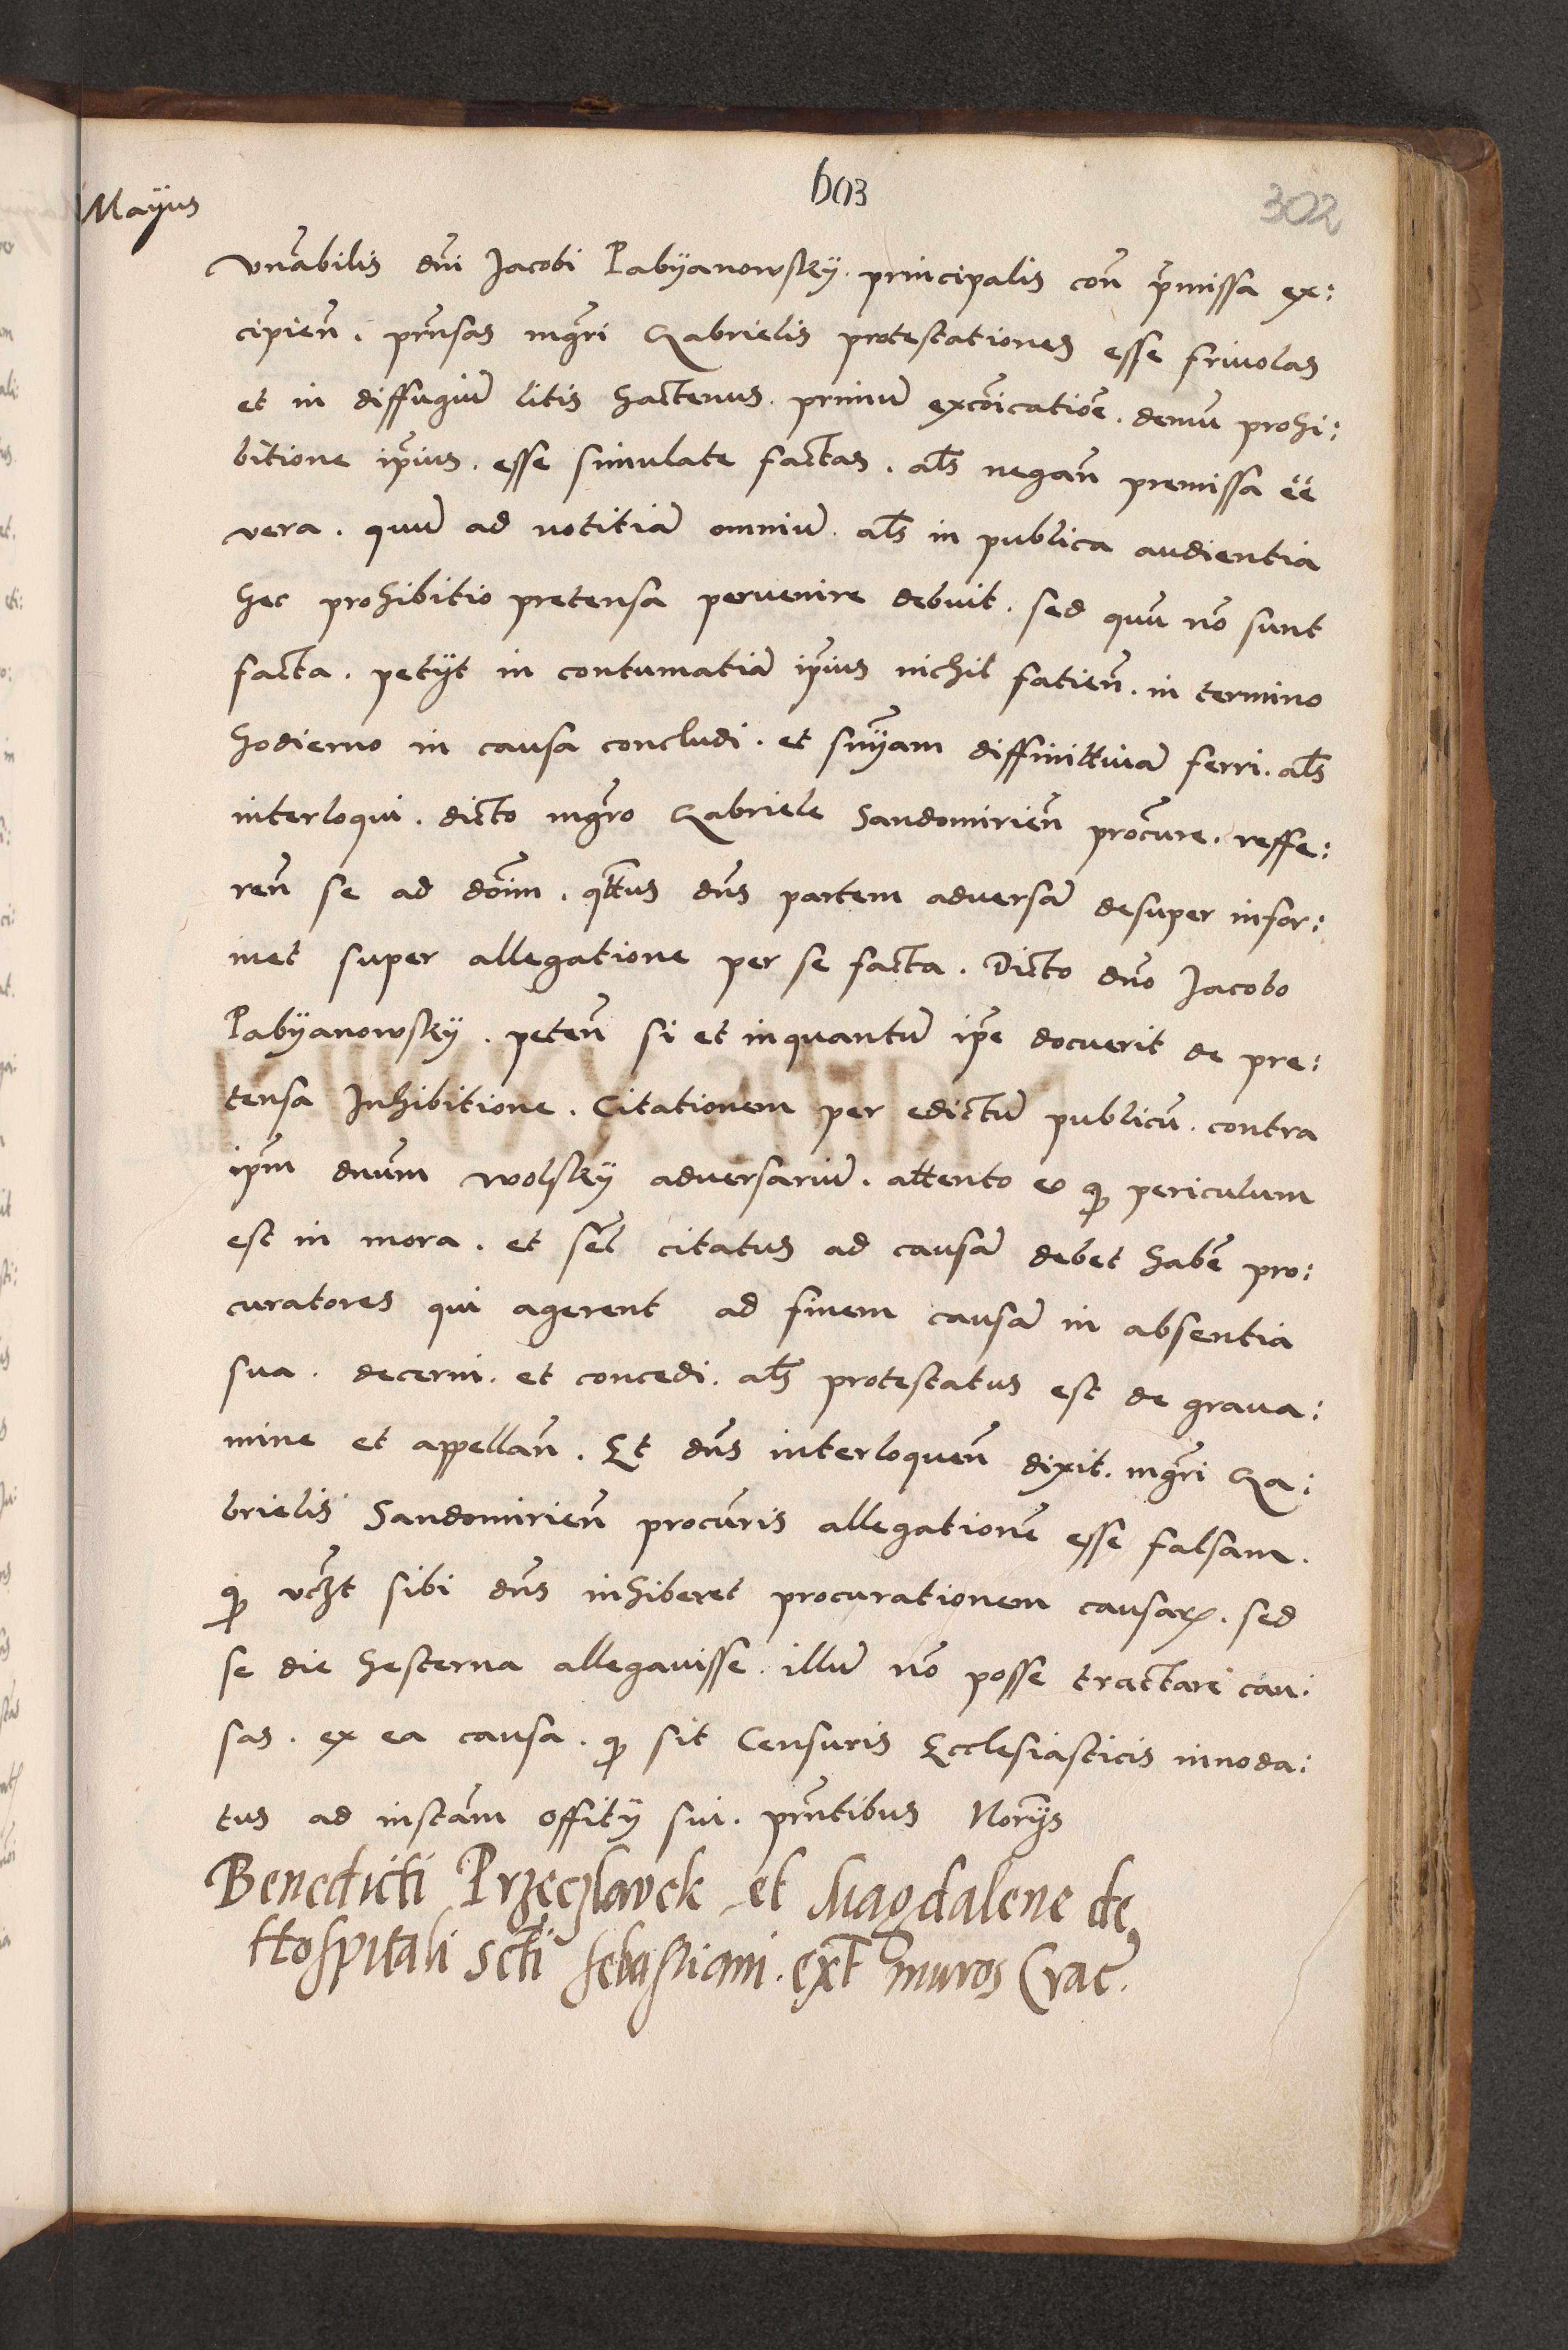 603
302
Mayus
vnabilis dni Jacobi Pabyanowsky. principalis con pmissa ex:
cipien. prnsas mgri Gabrielis protestationes esse friuolas
et in diffugiu litis hactenus. primu excoicatioe. demu prohi:
bitione ipius. esse simulate factas. als negan premissa ee
vera. quu ad notitia omniu. als in publica audientia
hec prohibitio pretensa peruenire debuit. sed quu no sunt
facta. petyt in contumatia ipius nichil fatien. in termino
hodierno in causa concludi. et snyam diffinittiua ferri. als
interloqui. dicto mgro Gabriele Sandomirien procure. reffe:
ren se ad doim. qttus dns partem aduersa desuper infor:
met super allegatione per se facta. Dicto dno Jacobo
Pabyanowsky. peten si et inquantu ipe docuerit de pre:
tensa Inhibitione. Citationem per edictu publicu. contra
ipm dnum wolsky aduersariu. attento eo q periculum
est in mora. et sel citatus ad causa debet habe pro:
curatores qui agerent ad finem causa in absentia
sua. decerni. et concedi. als protestatus est de graua:
mine et appellan. Et dns interloquen dixit. mgri Ga:
brielis Sandomirien procuris allegatione esse falsam.
q vczt sibi dns inhiberet procurationem causar. sed
se die hesterna allegauisse. illu no posse tractare cau:
sas. ex ea causa. q sit Censuris Ecclesiasticis innoda:
tus ad instam offity sui. prntibus Norys
Benedicti Przeczlavek et Magdalene de
Hospitali Scti sebastiani. ext muros Crac.